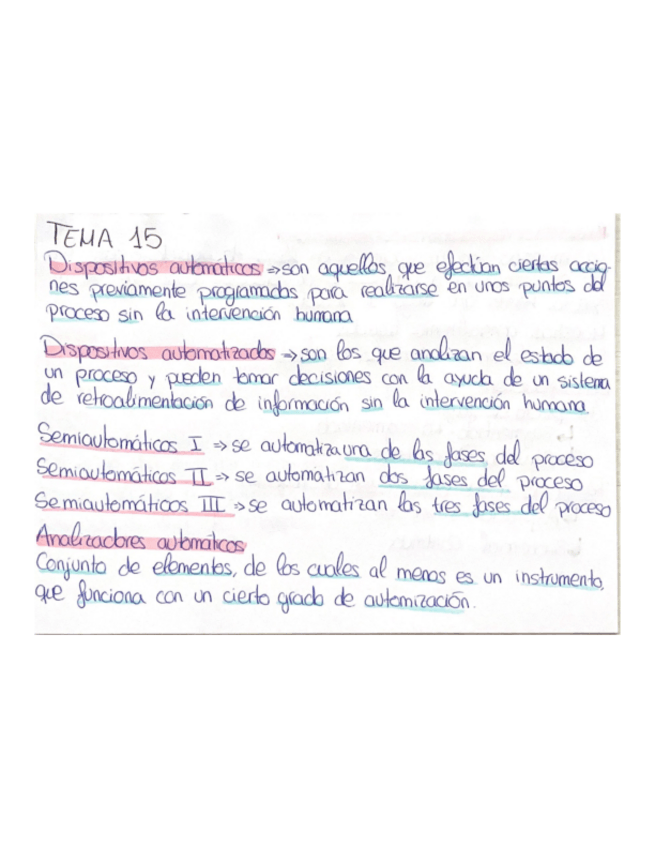 TEMA 15
Dispositivos automáticos ⇒ son aquellos que efectúan ciertas accio-
nes previamente programadas para realizarse en unos puntos del
proceso sin la intervención humana
Dispositivos automatizados ⇒ son los que analizan el estado de
un proceso y pueden tomar decisiones con la ayuda de un sistema
de retroalimentación de información sin la intervención humana.
Semiautomáticos I ⇒ se automatiza una de las fases del proceso
Semiautomáticos II ⇒ se automatizan dos fases del proceso
Semiautomáticos III ⇒ se automatizan las tres fases del proceso
Analizadores automáticos
Conjunto de elementos, de los cuales al menos es un instrumento,
que funciona con un cierto grado de automización.